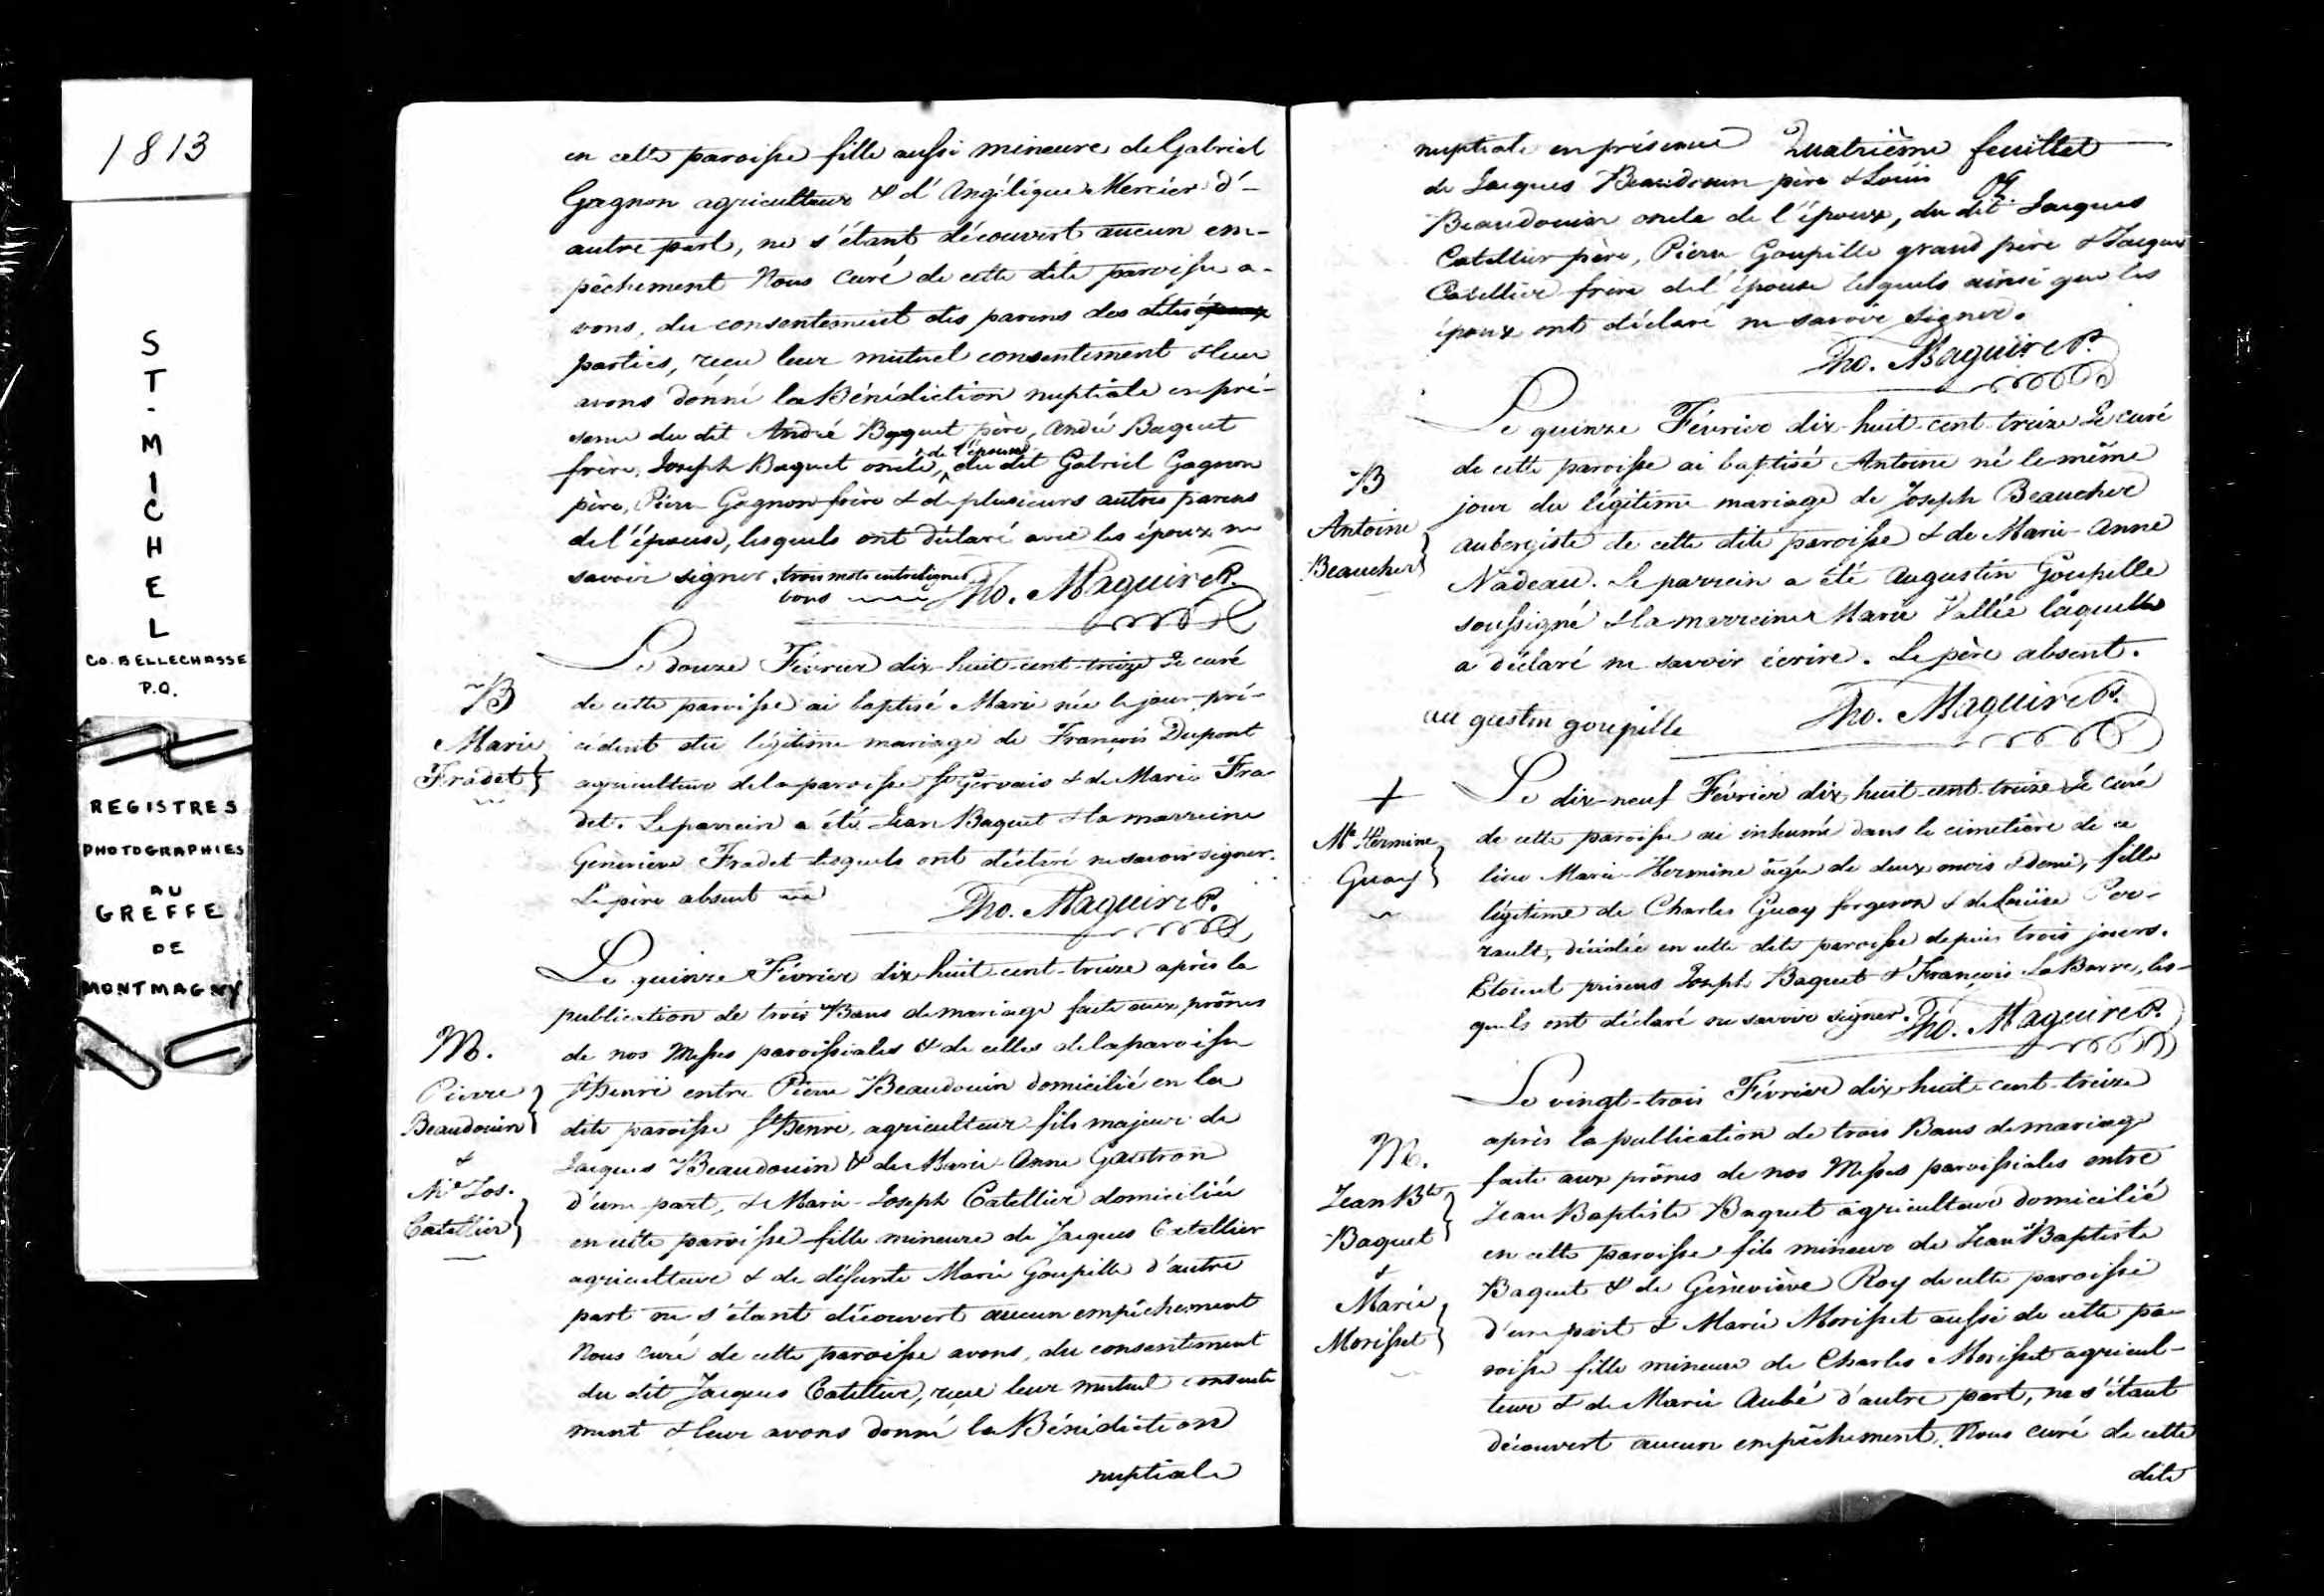 1813
ST. MICHEL
CO. BELLECHASSE
P.Q.
REGISTRES
PHOTOGRAPHIES
AU
GREFFE
DE
MONTMAGNY
en cette paroisse fille aussi mineure de Gabriel
Gagnon agriculteur & d'Angélique Mercier d'-
autre part, ne s'étant découvert aucun em-
pêchement Nous Curé de cette dite paroisse a-
vons, du consentement des parens des dites époux
parties, reçu leur mutuel consentement & leur
avons donné la Bénédiction nuptiale en pré-
sence du dit André Baquet père, André Baquet
frère, Joseph Baquet oncle, & de l'épouse du dit Gabriel Gagnon
père, Pierre Gagnon frère & de plusieurs autres parens
de l'épouse, lesquels ont déclaré avec les époux ne
savoir signer. trois mots entrelignes
bons Tho. Maguire P.
B
Marie
Fradet
Le douze Février dix-huit-cent-treize Je curé
de cette paroisse ai baptisé Marie née le jour pré-
cédent du légitime mariage de François Dupont
agriculteur de la paroisse St Gervais & de Marie Fra-
det. Le parrein a été Jean Baquet & la marreine
Génevieve Fradet lesquels ont déclaré ne savoir signer.
Le père absent
Tho. Maguire P.
M.
Pierre
Beaudouin
&
Me Jos.
Catellier
Le quinze Février dix-huit-cent-treize après la
publication de trois Bans de mariage faite aux prônes
de nos Messes paroissiales & de celles de la paroisse
St Henri entre Pierre Beaudouin domicilié en la
dite paroisse St Henri, agriculteur fils majeur de
Jacques Beaudouin & de Marie-Anne Gautron
d'une part, & Marie-Joseph Catellier domiciliée
en cette paroisse fille mineure de Jacques Catellier
agriculteur & de défunte Marie Goupille d'autre
part ne s'étant découvert aucun empêchement
Nous Curé de cette paroisse avons, du consentement
du dit Jacques Catellier, reçu leur mutuel consente
ment & leur avons donné la Bénédiction
nuptiale
nuptiale en présence Quatrième feuillet
de Jacques Beaudouin père & Louis
Beaudouin oncle de l'époux, du dit Jacques
Catellier père, Pierre Goupille grand père & Jacques
Catellier frère de l'épouse lesquels ainsi que les
époux ont déclaré ne savoir signer.
Tho. Maguire P.
B
Antoine
Beaucher
Le quinze Février dix-huit-cent-treize Je curé
de cette paroisse ai baptisé Antoine né le même
jour du légitime mariage de Joseph Beaucher
aubergiste de cette dite paroisse & de Marie-Anne
Nadeau. Le parrein a été Augustin Goupille
soussigné & la marreine Marie Vallée laquelle
a déclaré ne savoir écrire. Le père absent.
augustin goupille Tho. Maguire P.
+
Me Hermine
Guay
Le dix-neuf Février dix huit-cent-treize Je Curé
de cette paroisse ai inhumé dans le cimetière de ce
lieu Marie-Hermine âgée de deux mois & demi, fille
légitime de Charles Guay forgeron & de Louise Per-
rault, décédée en cette dite paroisse depuis trois jours.
Etoient présens Joseph Baquet & François LaBarre, les-
quels ont déclaré ne savoir signer. Tho. Maguire P.
M.
Jean Bte
Baquet
&
Marie
Morisset
Le vingt-trois Février dix huit-cent-treize
après la publication de trois Bans de mariage
faite aux prônes de nos Messes paroissiales entre
Jean Baptiste Baquet agriculteur domicilié
en cette paroisse fils mineur de Jean Baptiste
Baquet & de Génevieve Roy de cette paroisse
d'une part & Marie Morisset aussi de cette pa-
roisse fille mineure de Charles Morisset agricul-
teur & de Marie Aubé d'autre part, ne s'étant
découvert aucun empêchement, Nous curé de cette
dite